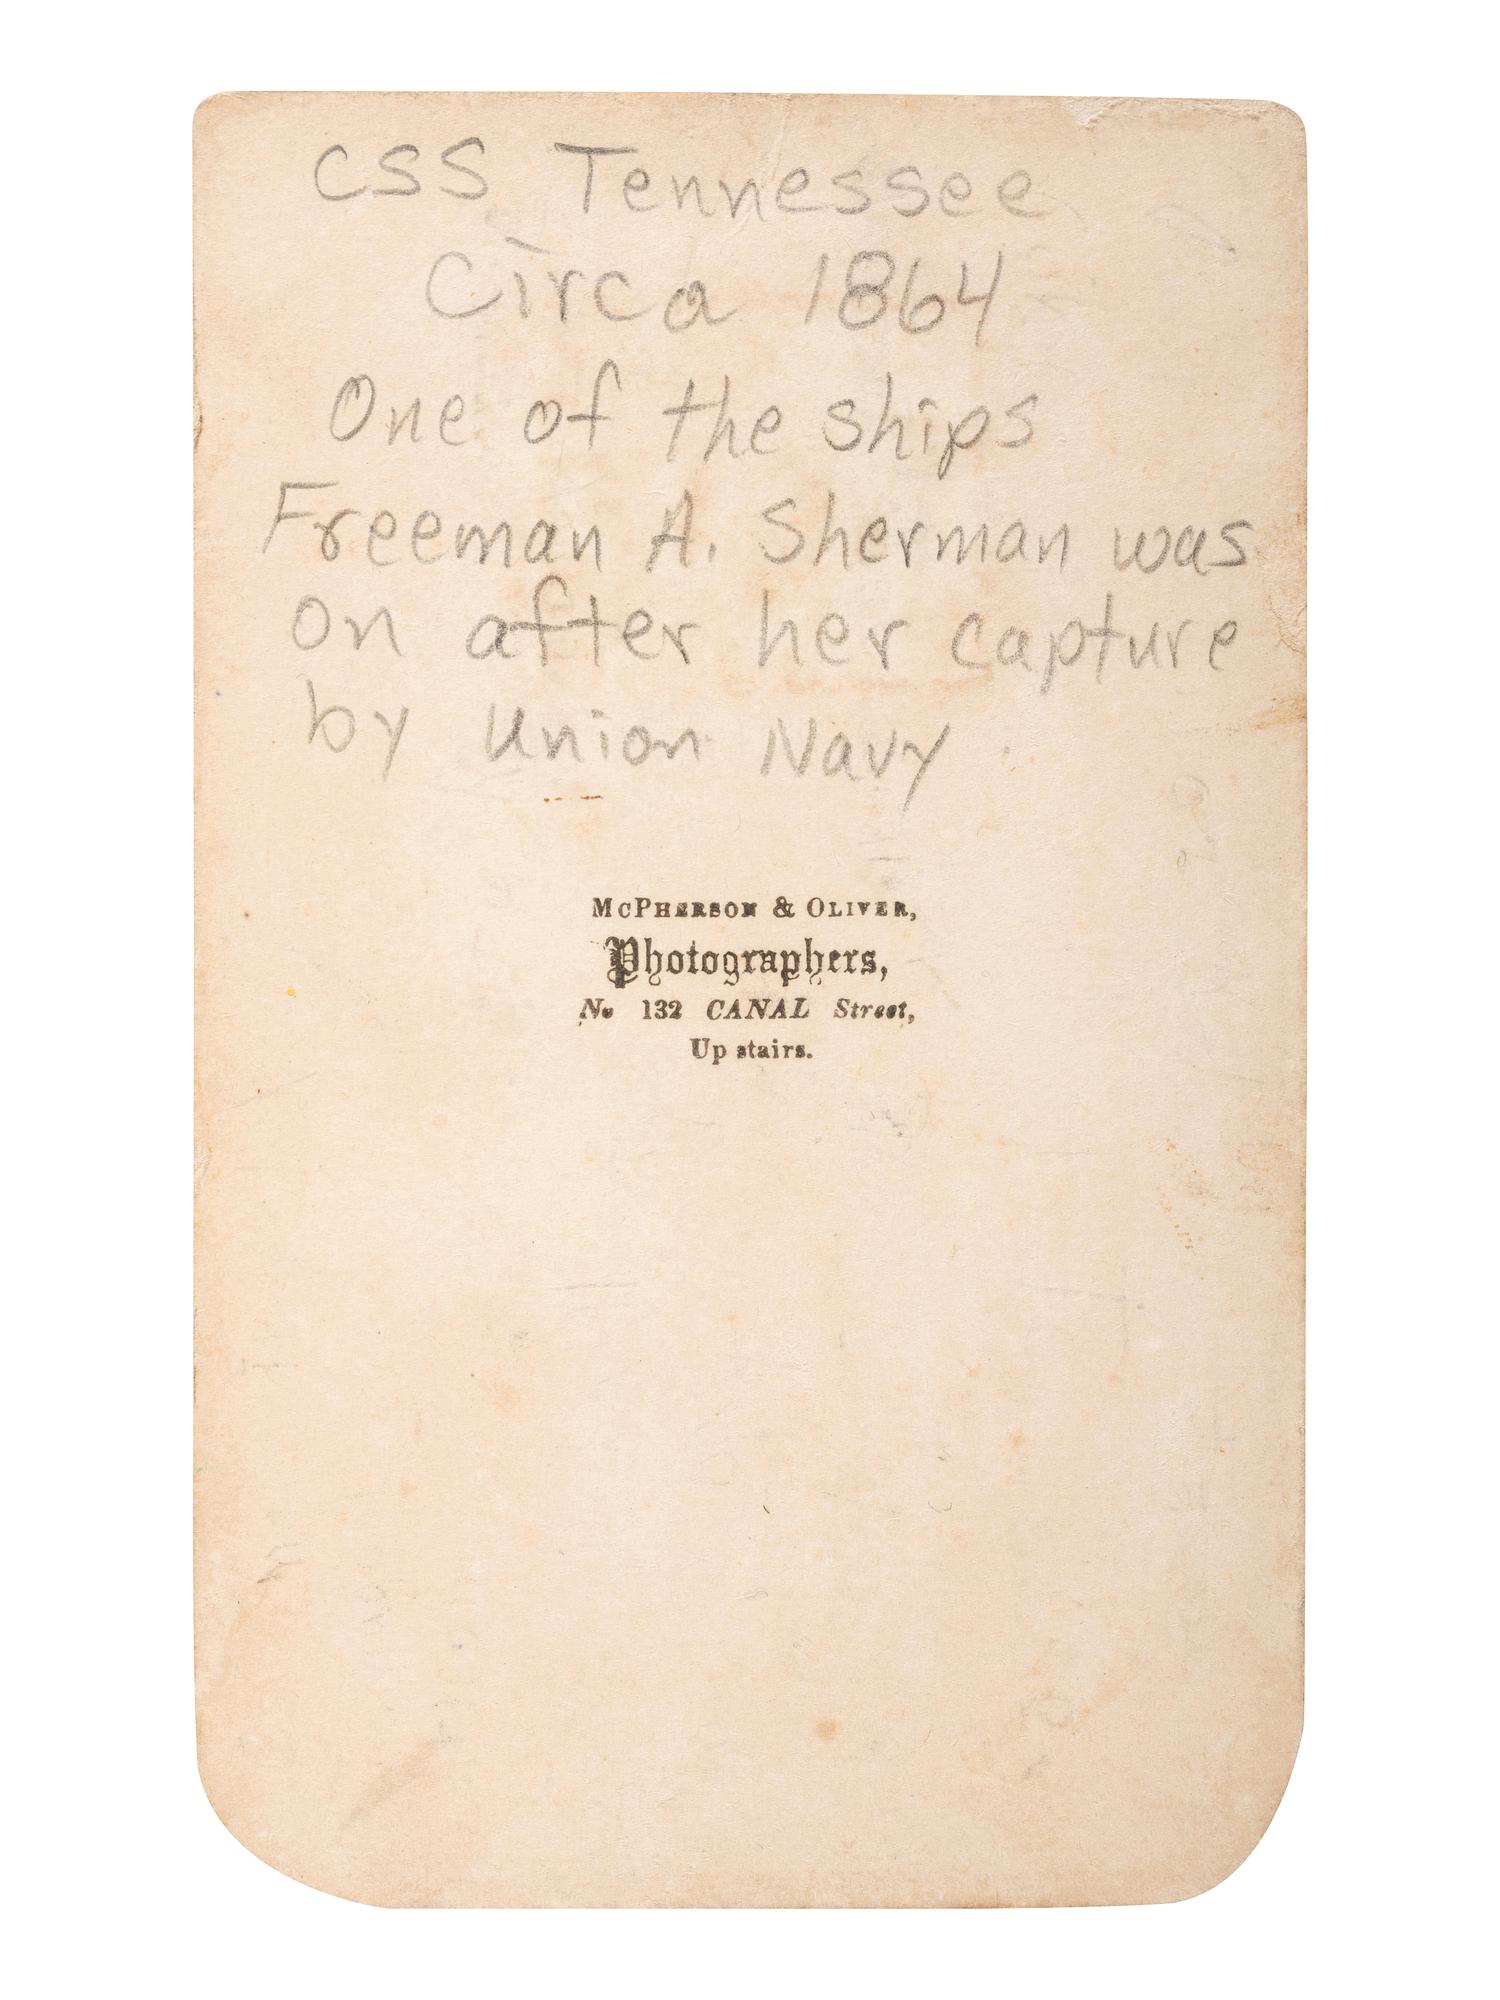 CSS Tennessee
Circa 1864
One of the ships
Freeman A. Sherman was
on after her capture
by Union Navy
McPherson & Oliver,
Photographers,
No 132 CANAL Street,
Up stairs.